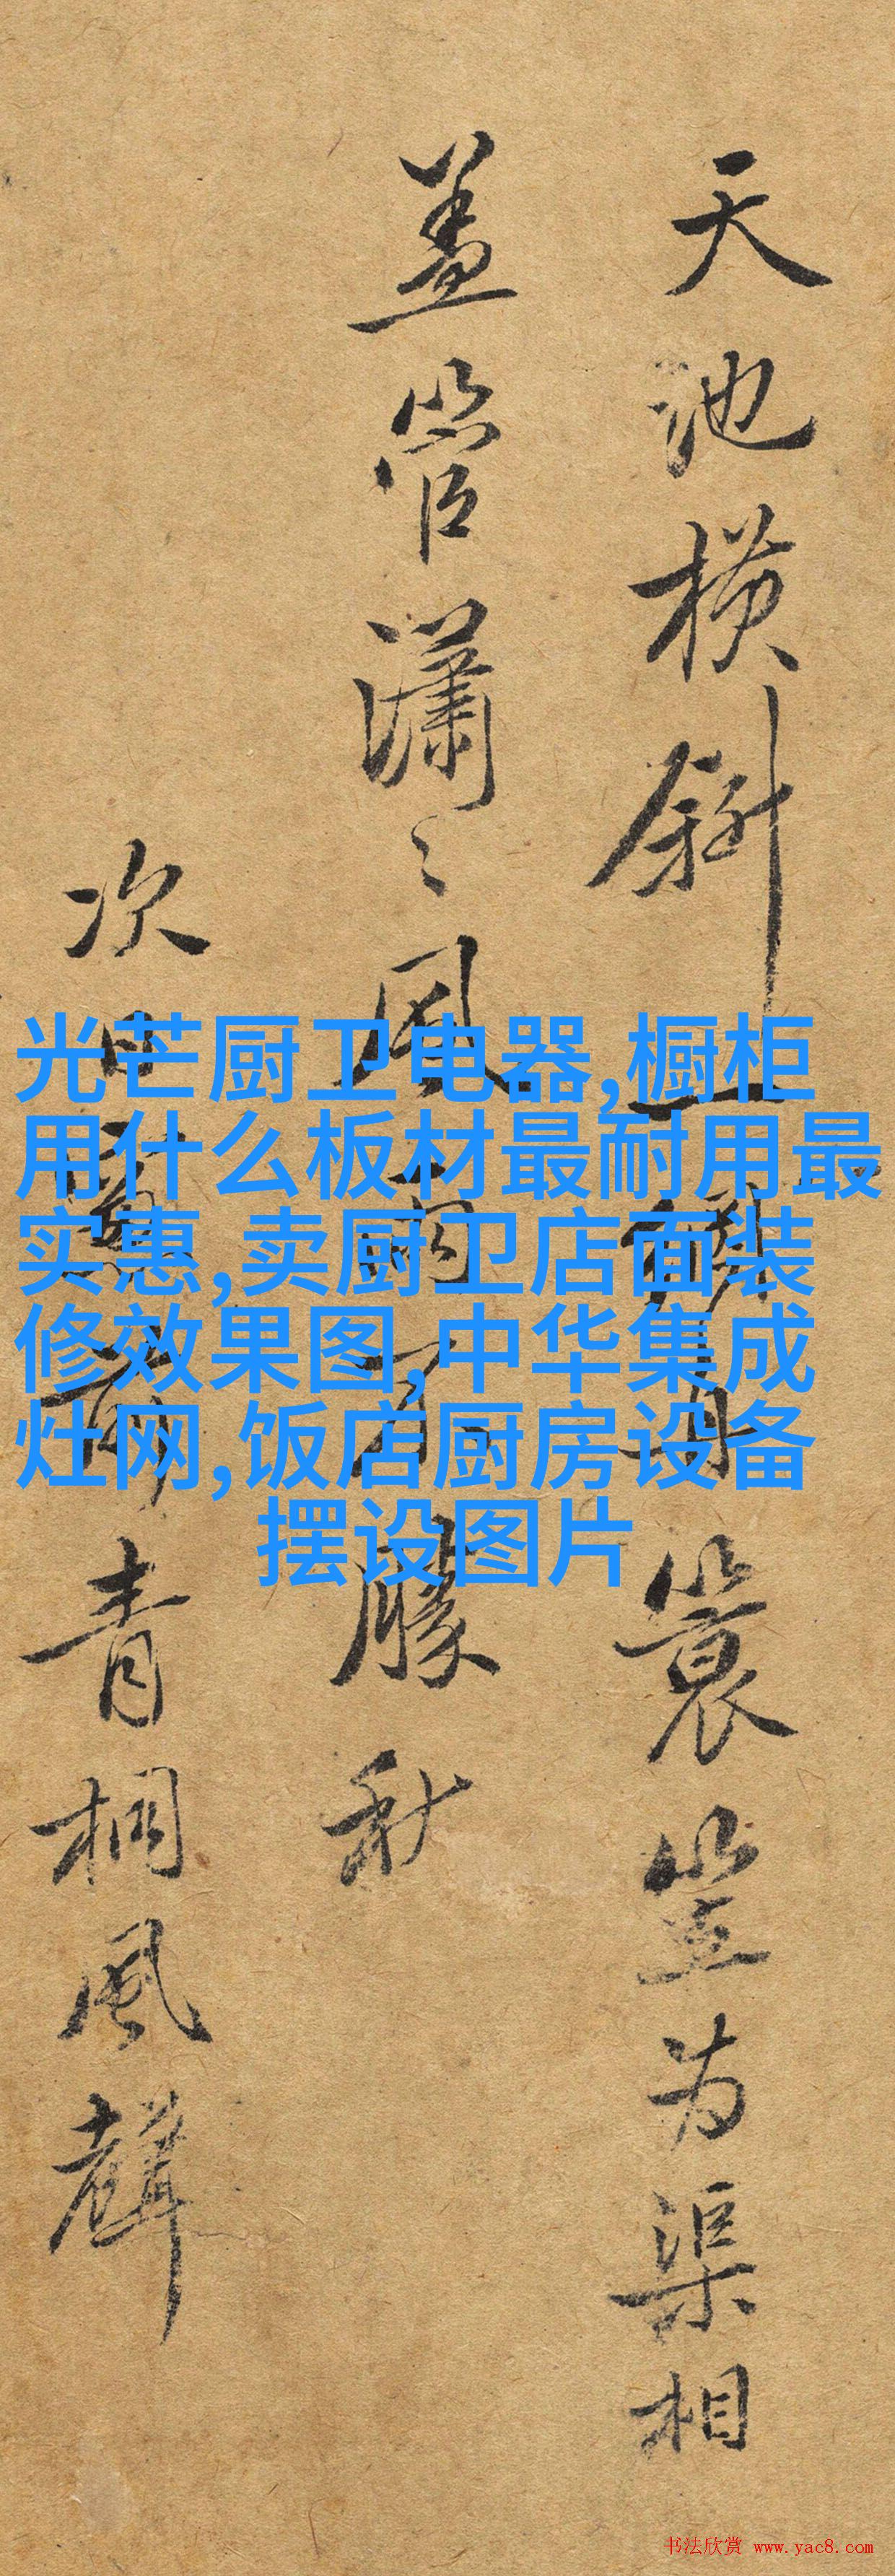 天池横斜一㩲舟蓑笠为渠相
盖篛潇〻風雨不朦秋
次日青桐風聲
光芒厨卫电器,橱柜
用什么板材最耐用最
实惠,卖厨卫店面装
修效果图,中华集成
灶网,饭店厨房设备
摆设图片
书法欣赏 www.yac8.com